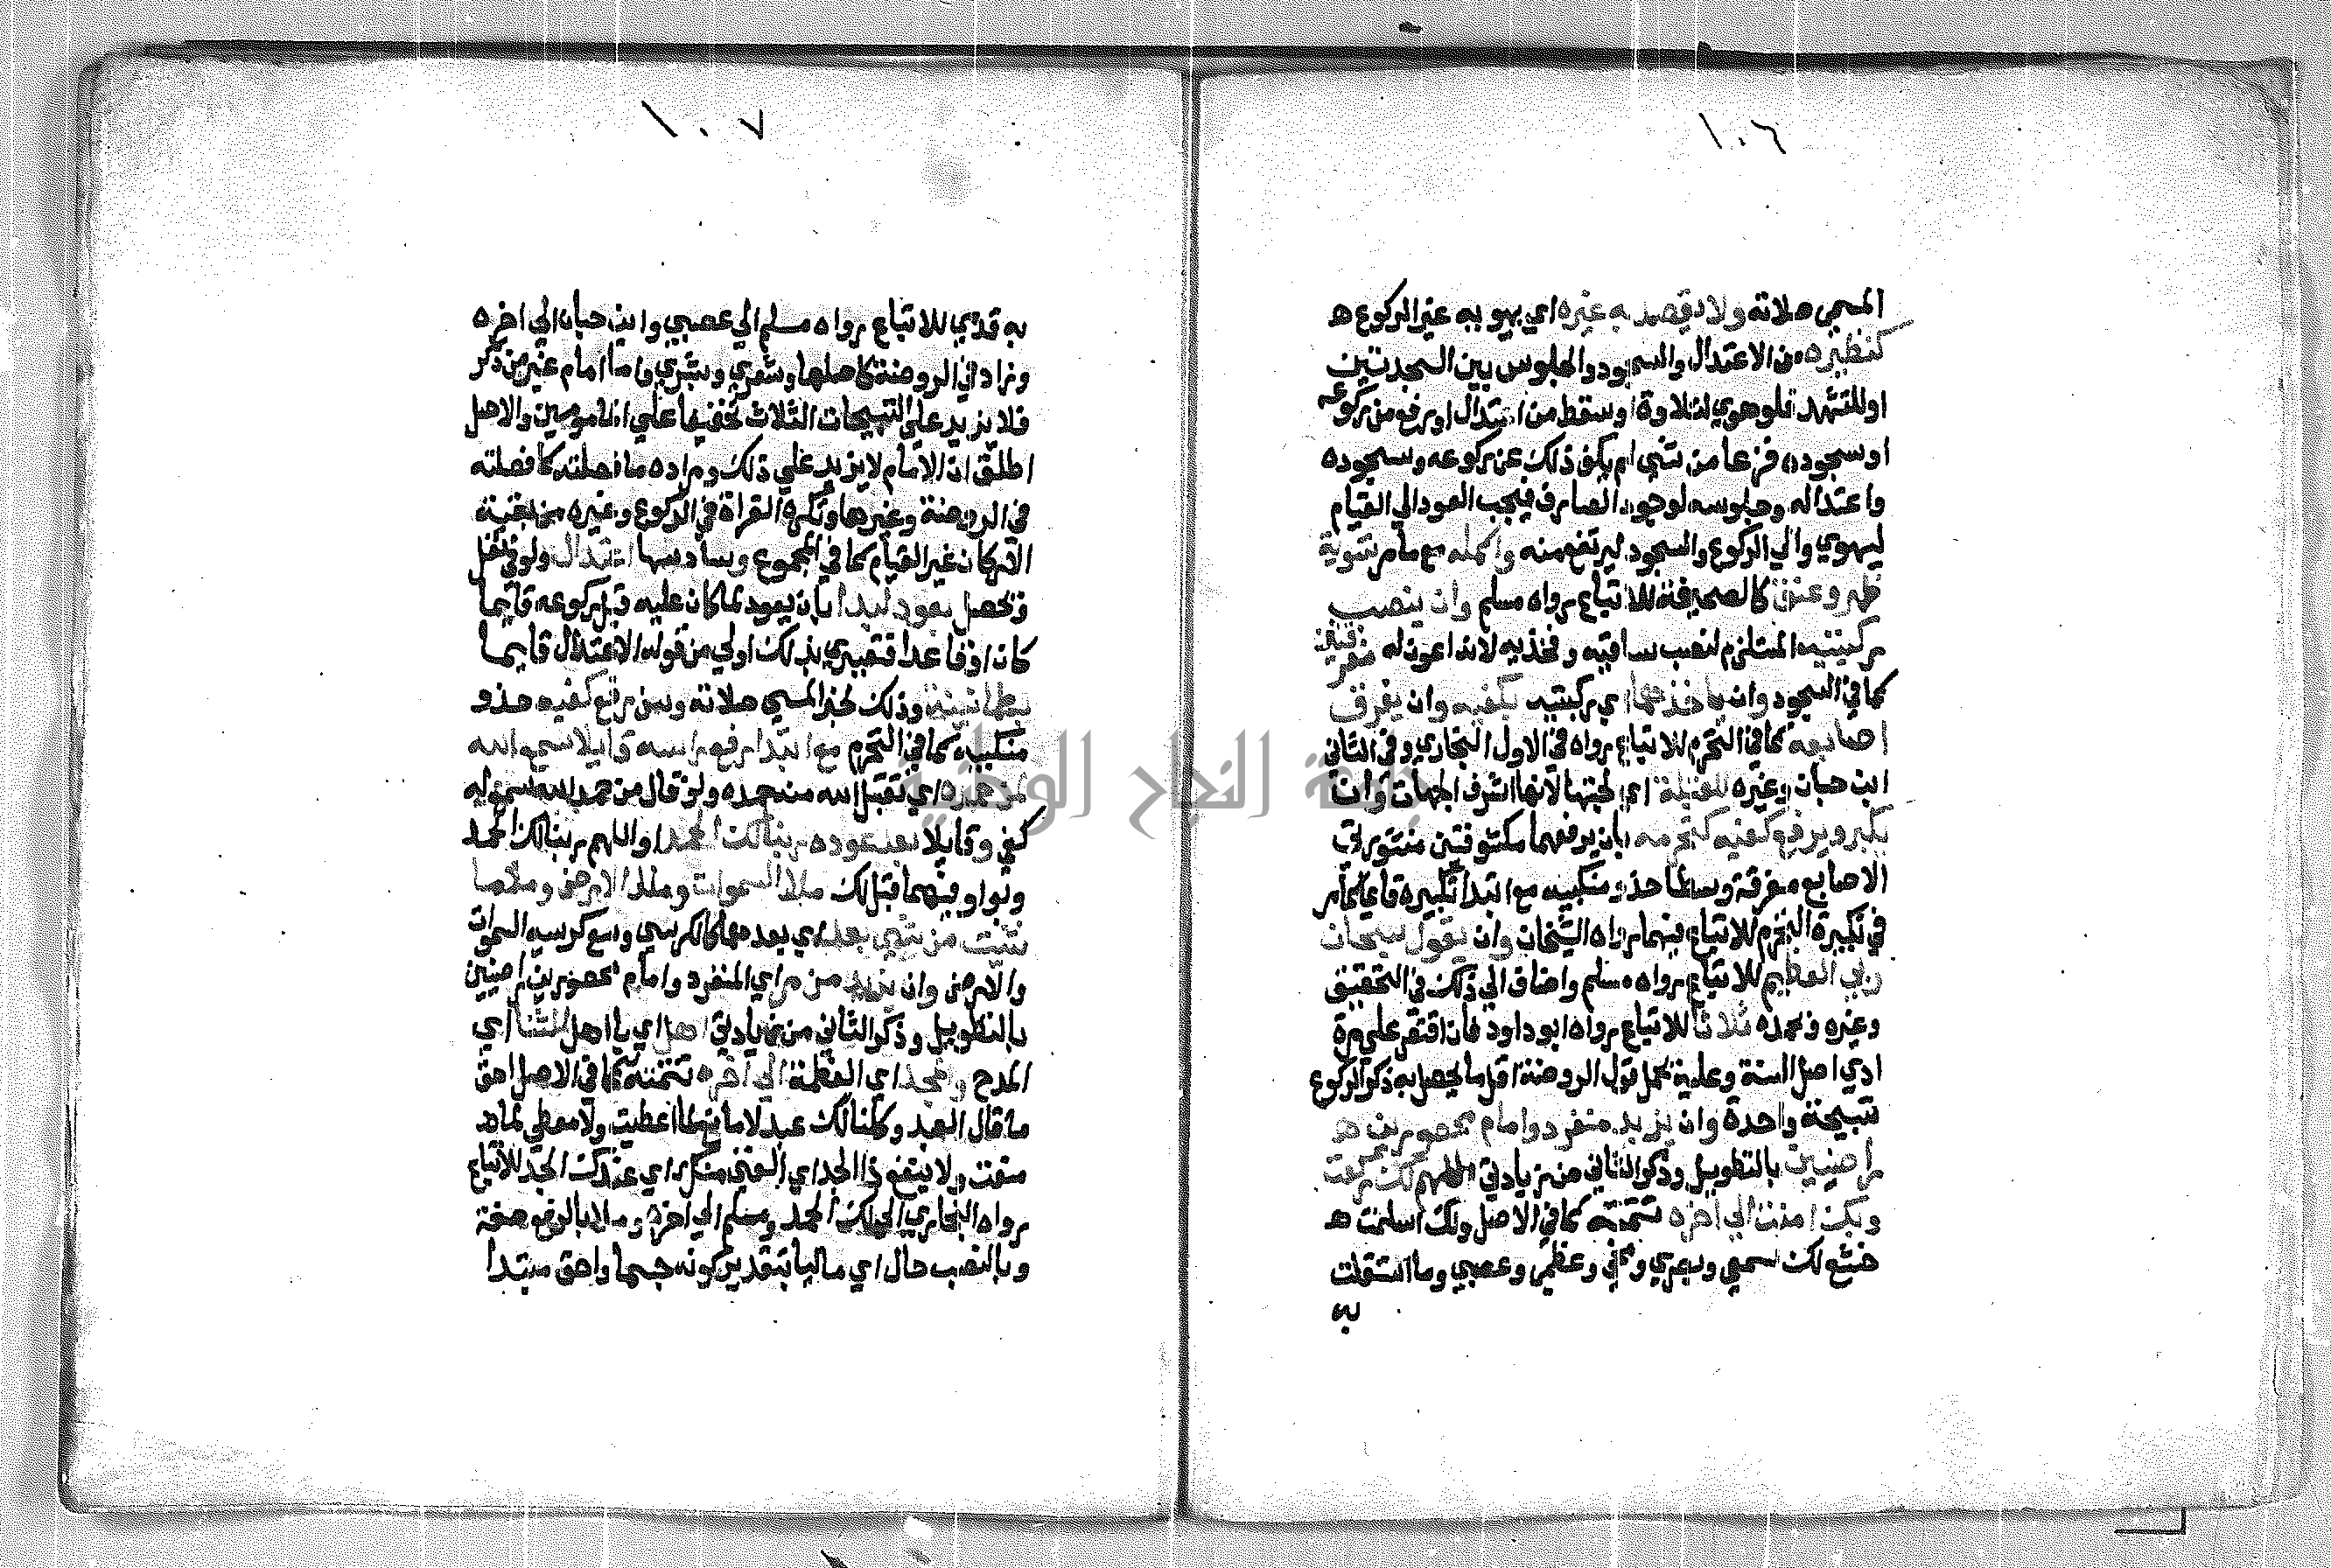 ١٠٦
المسي صلاته ولا يقصد به غيره اي يهويه غير الركوع ه
كنظيره من الاعتدال والسجود والجلوس بين السجدتين
او للتشهد فلو هوي لتلاوة او سقط من اعتدال او رفع من ركوعه
او سجوده فزعا من شي لم يكف ذلك عن ركوعه وسجوده
واعتداله وجلوسه لوجود الصارف فيجب العود الي القيام
ليهوي والي الركوع والسجود ليرتفع منه واكمله مع ما مر تسوية
ظهر وعنق كالصحيفة للاتباع رواه مسلم وان ينصب
ركبتيه المستلزم لنصب ساقيه وفخذيه لانه اعون له مفرقتين
كما في السجود وان ياخذهما اي ركبتيه بكفيه وان يفرق
اصابعه كما في التحرم للاتباع رواه في الاول البخاري وفي الثاني
ابن حبان وغيره للقبلة اي لجهتها لانها اشرف الجهات وان
يكبر ويرفع كفيه كتحرمه بان يرفعهما مكشوفتين منشورتي
الاصابع مفرقة وسطا حذو منكبيه مع ابتدا تكبيره قايما كما مر
في تكبيرة التحرم للاتباع فيهما رواه الشيخان وان يقول سبحان
ربي العظيم للاتباع رواه مسلم واضاف الي ذلك في التحقيق
وغيره وبحمده ثلاثا للاتباع رواه ابو داود فان اقتصر علي مرة
ادي اصل السنة وعليه يحمل قول الروضة اقل ما يحصل به ذكر الركوع
تسبيحة واحدة وان يزيد منفرد وامام محصورين ه
راضيين بالتطويل وذكر الثاني من زيادتي اللهم لك ركعت
وبك امنت الي اخره تتمته كما في الاصل ولك اسلمت ه
خشع لك سمعي وبصري ومخي وعظمي وعصبي وما استقلت
به
١٠٧
به قدمي للاتباع رواه مسلم الي عصبي وابن حبان الي اخره
وزاد في الروضة كاصلها وشعري وبشري واما امام غير من ذكر
فلا يزيد علي التسبيحات الثلاث تخفيفا علي المامومين والاصل
اطلق ان الامام لا يزيد علي ذلك ومراده ما فصلته كما فصلته
في الروضة وغيرها وتكره القراة في الركوع وغيره من بقية
الاركان غير القيام كما في المجموع وسادسها اعتدال ولو في نفل
ويحصل بعود لبدا بان يعود لما كان عليه قبل ركوعه قايما
كان او قاعدا فتعبيري بذلك اولي من قوله الاعتدال قايما
بطمانينة وذلك لخبر المسي صلاته وسن رفع كفيه حذو
منكبيه كما في التحرم مع ابتدا رفع راسه قايلا سمع الله
لمن حمده اي تقبل الله منه حمده ولو قال من حمد الله سمع له
كفي وقايلا بعد عوده ربنا لك الحمد او اللهم ربنا لك الحمد
وبواو فيهما قبل لك ملا السموات وملا الارض وملا ما
شيت من شي بعد اي بعدهما كالكرسي وسع كرسيه السموات
والارض وان يزيد من مر اي المنفرد وامام محصورين راضين
بالتطويل وذكر الثاني من زيادتي اهل اي يا اهل الثنا اي
المدح والمجد اي العظمة الي اخره تتمته كما في الاصل احق
ما قال العبد وكلنا لك عبد لا مانع لما اعطيت ولا معطي لما ه
منعت ولا ينفع ذا الجد اي الغني منك اي عندك الجد للاتباع
رواه البخاري الي لك الحمد ومسلم الي اخره وملا بالرفع صفة
وبالنصب حال اي ماليا بتقدير كونه جسما واحق مبتدا
جامعة النجاح الوطنية